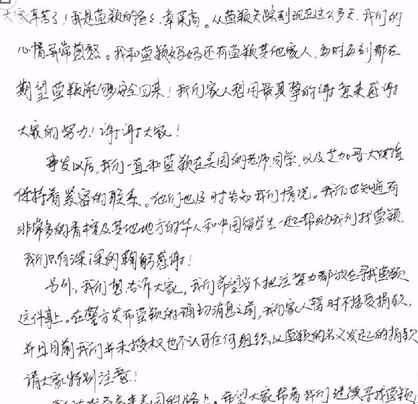 大家辛苦了！我是蓝颖的爸爸，章荣高。从蓝颖失踪到现在这么多天，我们的
心情异常焦急。我和蓝颖妈妈还有蓝颖其他家人，每时每刻都在
期望蓝颖能够安全回来！我们家人想用最真挚的谢意来感谢
大家的努力！谢谢大家！
事发以后，我们一直和蓝颖在美国的老师同学，以及芝加哥大使馆
保持着紧密的联系。他们也及时告知我们情况。我们也知道有
非常多的香槟及其他地方的华人和中国留学生一起帮助我们找蓝颖
我们只有深深的鞠躬感谢！
另外，我们想告诉大家，我们希望当下把注意力都放在寻找蓝颖
这件事上。在警方发布蓝颖的确切消息之前，我们家人暂时不接受捐款，
并且目前我们并未授权也不认可任何组织以蓝颖的名义发起的捐款
请大家特别注意！
美国的路上，希望大家帮着我们继续寻找蓝颖